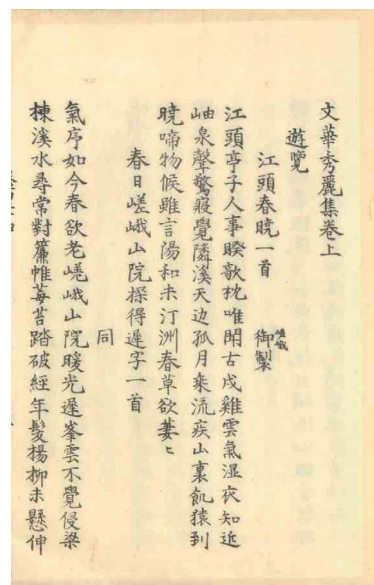 文華秀麗集卷上
遊覽
江頭春曉一首
嵯峨
御製
江頭亭子人事暌欹枕唯聞古戍雞雲氣濕衣知近
岫泉聲驚寢覺隣溪天边孤月乘流疾山裏飢猿到
曉啼物候雖言陽和未汀洲春草欲萋〻
春日嵯峨山院探得遲字一首
同
氣序如今春欲老嵯峨山院暖光遲峯雲不覺侵梁
棟溪水尋常對簾帷莓苔踏破經年髮楊柳未懸伸